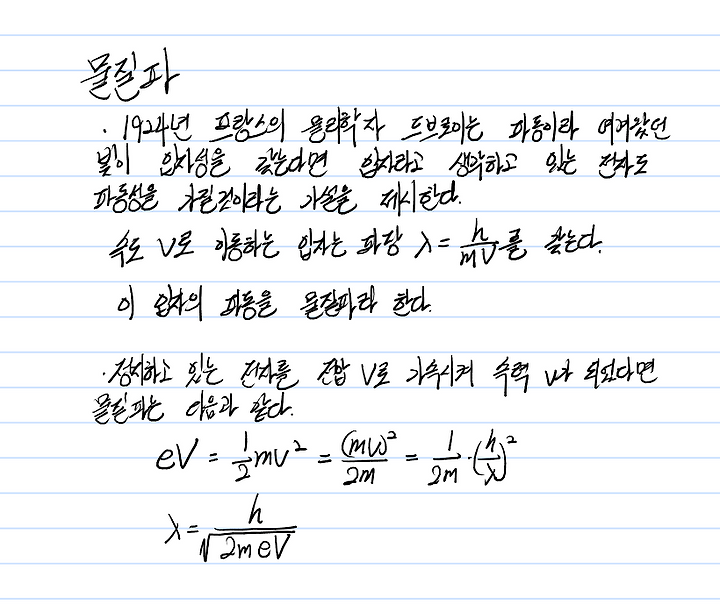 물질파
· 1924년 프랑스의 물리학자 드브로이는 파동이라 여겨왔던
빛이 입자성을 갖는다면 입자라고 생각하고 있는 전자도
파동성을 가질것이라는 가설을 제시한다.
속도 v로 이동하는 입자는 파장 λ = h/mv 를 갖는다.
이 입자의 파동을 물질파라 한다.
· 정지하고 있는 전자를 전압 V로 가속시켜 속력 v가 되었다면
물질파는 다음과 같다.
eV = 1/2 mv² = (mv)²/2m = 1/2m · (h/λ)²
λ = h/√(2meV)